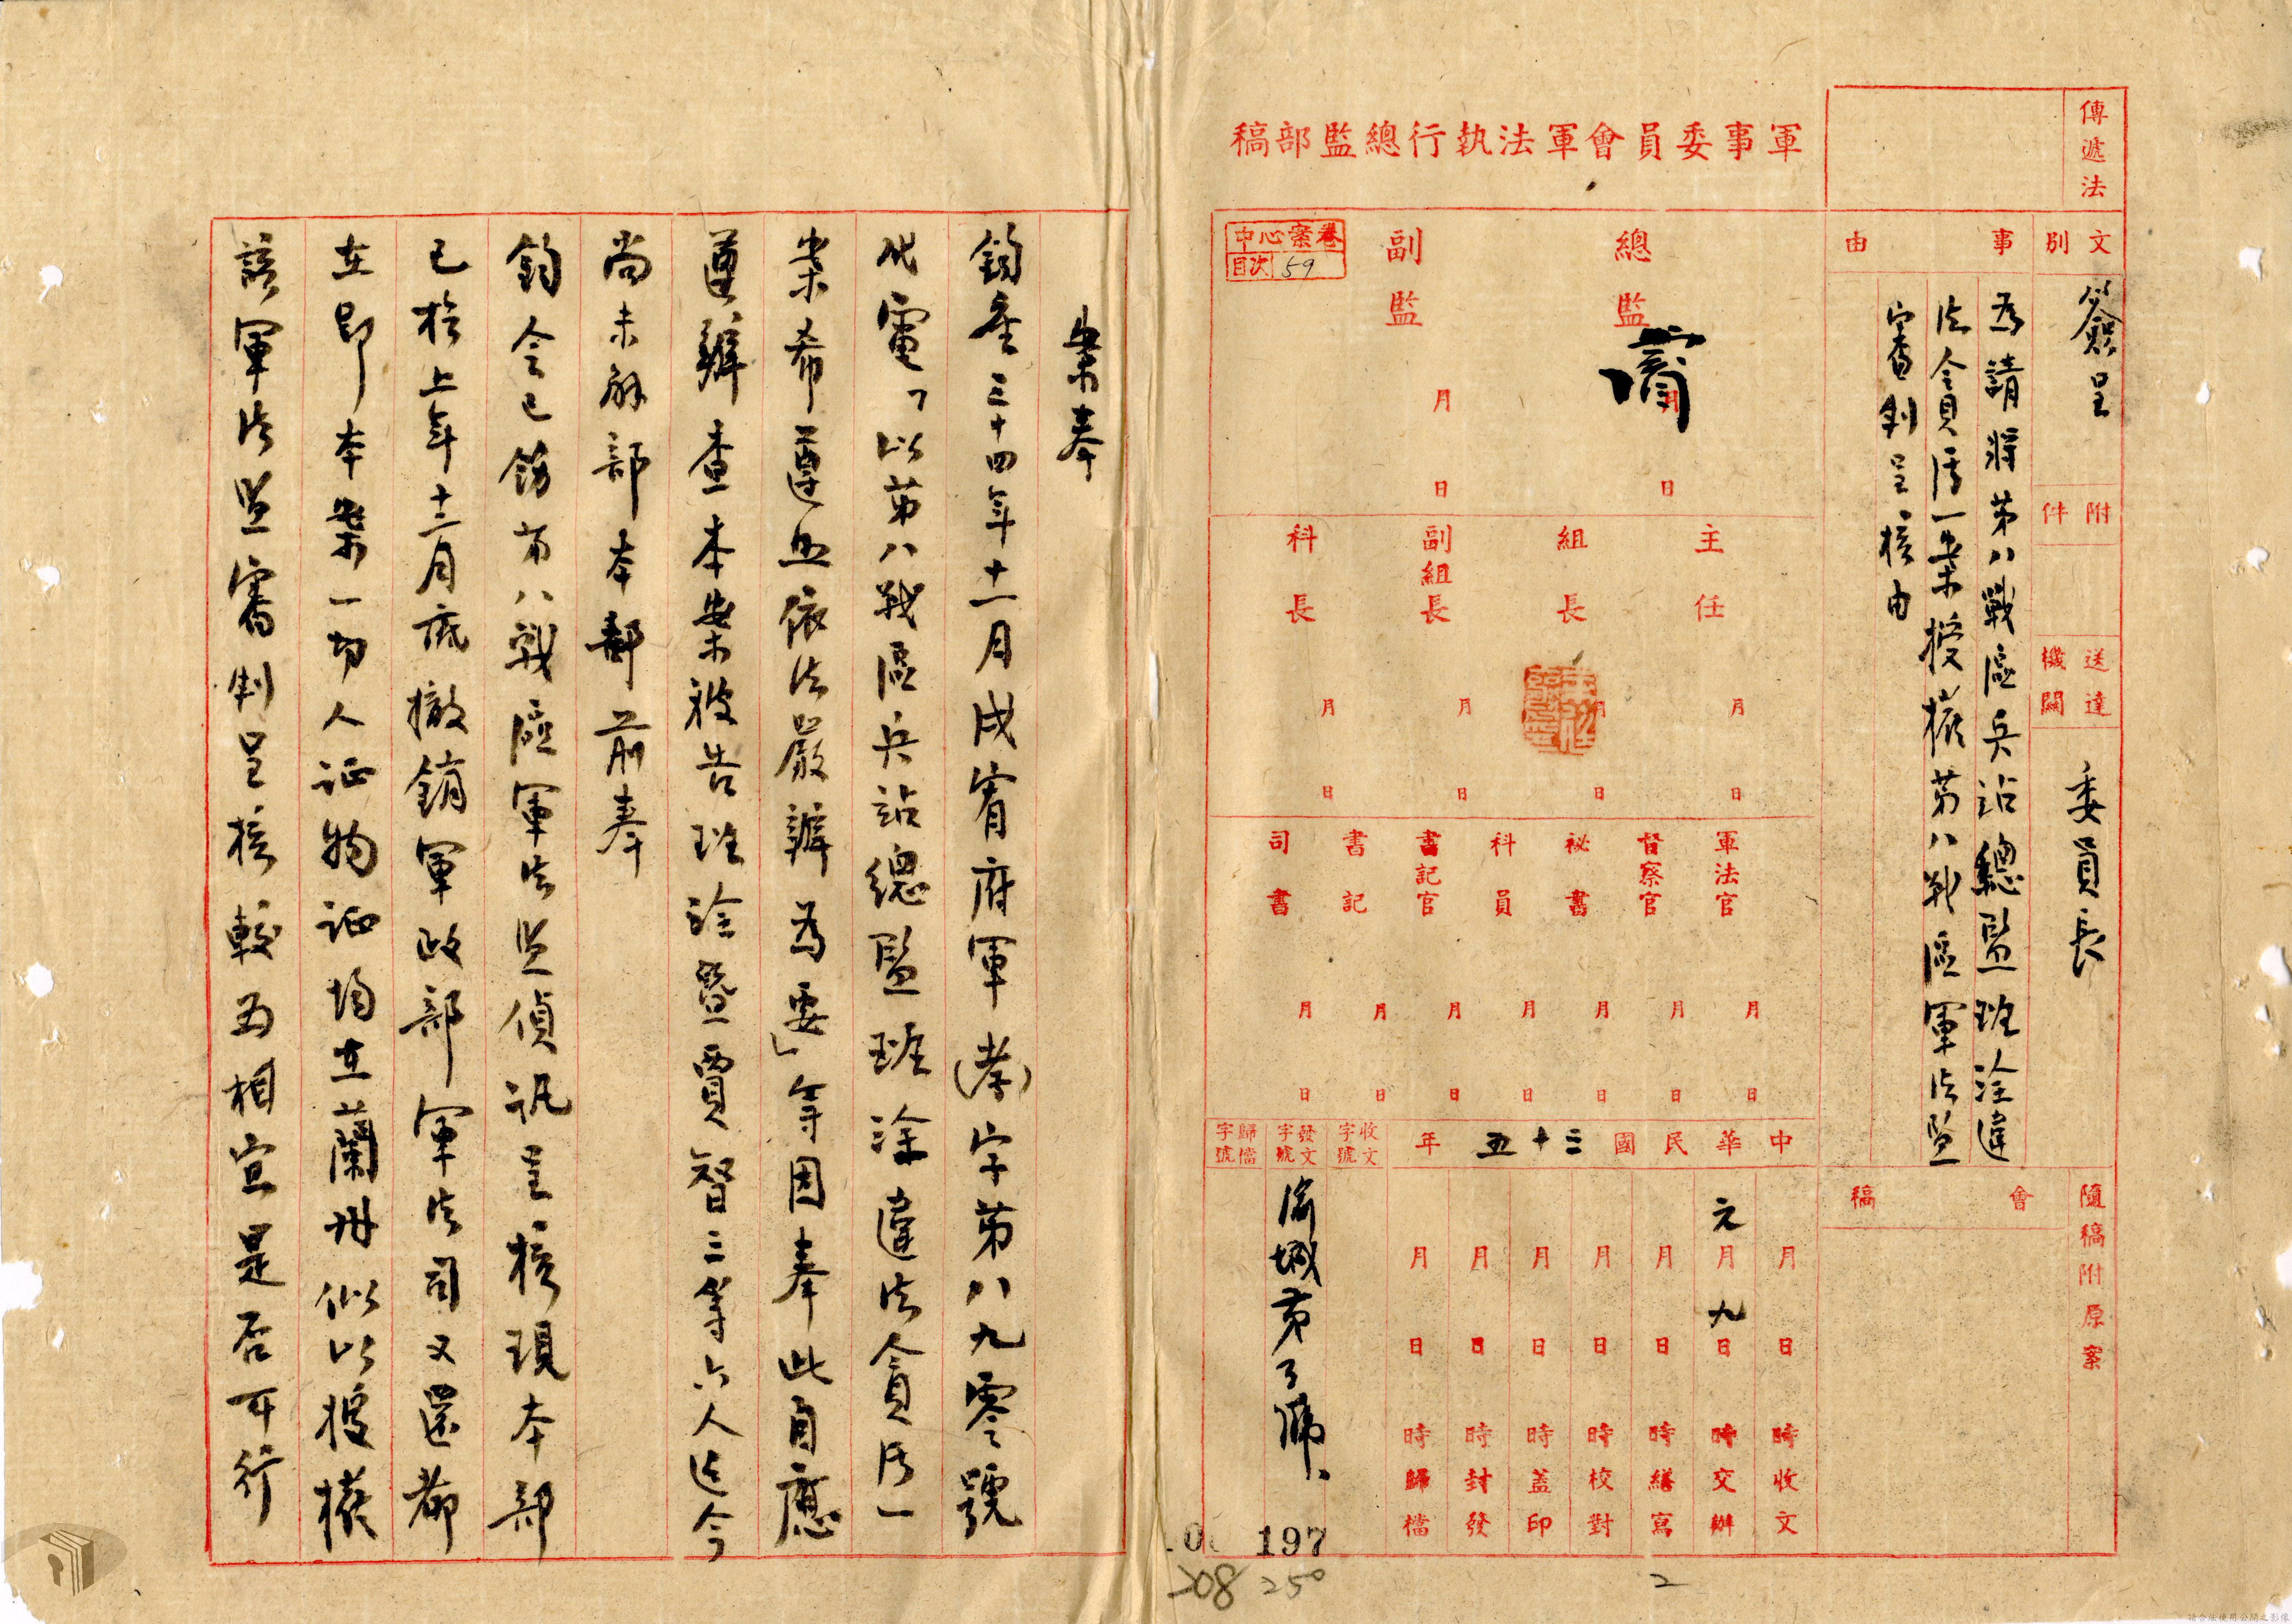 軍事委員會軍法執行總監部稿
傳遞法
文別
簽呈
附件
送達機關
委員長
事由
為請將第八戰區兵站總監班淦違
法貪污一案授權第八戰區軍法監
審判呈核由
隨稿附原案
會稿
總監
月
日
副監
月
日
中心案卷
目次 59
主任
月
日
組長
月
日
副組長
月
日
科長
月
日
軍法官
月
日
督察官
月
日
祕書
月
日
科員
月
日
書記官
月
日
書記
月
日
司書
月
日
中華民國三十五年
月 日 時收文
元月九日 時交辦
月 日 時繕寫
月 日 時校對
月 日 時蓋印
月 日 時封發
月 日 時歸檔
收文字號
發文字號
渝城第3號
歸檔字號
197
208 250
2
案奉
鈞座三十四年十一月戌宥府軍(孝)字第八九零號
代電「以第八戰區兵站總監班淦違法貪污一
案希遵照依法嚴辦為要」等因奉此自應
遵辦查本案被告班淦暨賈智三等六人迄今
尚未解部本部前奉
鈞令已飭第八戰區軍法監偵訊呈核現本部
已於上年十二月底撤銷軍政部軍法司又還都
在即本案一切人証物証均在蘭州似以授權
該軍法監審判呈核較為相宜是否可行